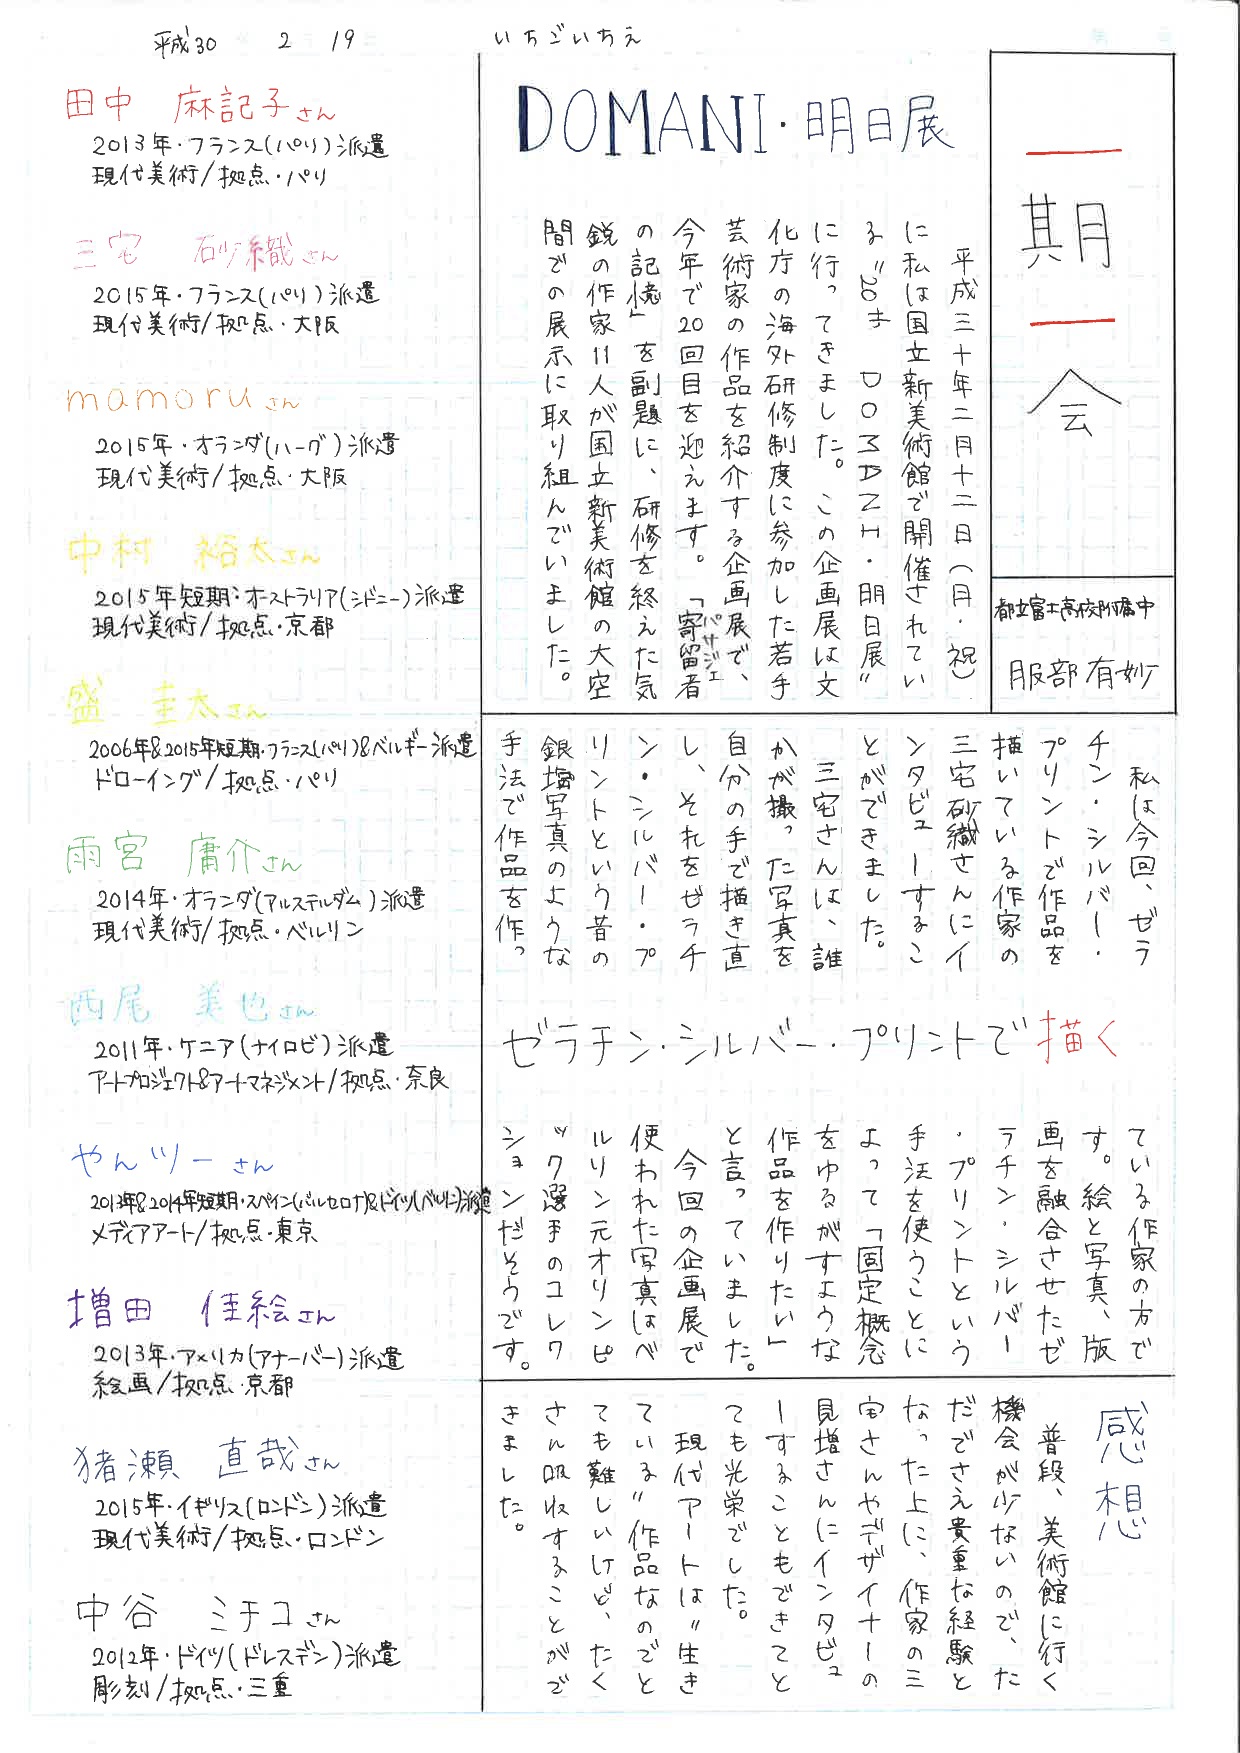 平成30 2 19
いちごいちえ
一期一会
都立富士高校附属中
服部有妙
DOMANI・明日展
平成三十年二月十二日(月・祝)
に私は国立新美術館で開催されてい
る"20th DOMANI・明日展"
に行ってきました。この企画展は文
化庁の海外研修制度に参加した若手
芸術家の作品を紹介する企画展で、
今年で20回目を迎えます。「寄留者
パサジェ
の記憶」を副題に、研修を終えた気
鋭の作家11人が国立新美術館の大空
間での展示に取り組んでいました。
私は今回、ゼラ
チン・シルバー・
プリントで作品を
描いている作家の
三宅砂織さんにイ
ンタビューするこ
とができました。
三宅さんは、誰
かが撮った写真を
自分の手で描き直
し、それをゼラチ
ン・シルバー・プ
リントという昔の
銀塩写真のような
手法で作品を作っ
ゼラチン・シルバー・プリントで描く
ている作家の方で
す。絵と写真、版
画を融合させたゼ
ラチン・シルバー
・プリントという
手法を使うことに
よって「固定概念
をゆるがすような
作品を作りたい」
と言っていました。
今回の企画展で
使われた写真はベ
ルリン元オリンピ
ック選手のコレク
ションだそうです。
感想
普段、美術館に行く
機会が少ないので、た
だでさえ貴重な経験と
なった上に、作家の三
宅さんやデザイナーの
見増さんにインタビュ
ーすることもできてと
ても光栄でした。
現代アートは"生き
ている"作品なのでと
ても難しいけど、たく
さん吸収することがで
きました。
田中 麻記子さん
2013年・フランス(パリ)派遣
現代美術/拠点・パリ
三宅 砂織さん
2015年・フランス(パリ)派遣
現代美術/拠点・大阪
mamoruさん
2015年・オランダ(ハーグ)派遣
現代美術/拠点・大阪
中村 裕太さん
2015年短期・オーストラリア(シドニー)派遣
現代美術/拠点・京都
盛 圭太さん
2006年&2015年短期・フランス(パリ)&ベルギー派遣
ドローイング/拠点・パリ
雨宮 庸介さん
2014年・オランダ(アルステルダム)派遣
現代美術/拠点・ベルリン
西尾 美也さん
2011年・ケニア(ナイロビ)派遣
アートプロジェクト&アートマネジメント/拠点・奈良
やんツーさん
2013年&2014年短期・スペイン(バルセロナ)&ドイツ(ベルリン)派遣
メディアアート/拠点・東京
増田 佳絵さん
2013年・アメリカ(アナーバー)派遣
絵画/拠点・京都
猪瀬 直哉さん
2015年・イギリス(ロンドン)派遣
現代美術/拠点・ロンドン
中谷 ミチコさん
2012年・ドイツ(ドレスデン)派遣
彫刻/拠点・三重